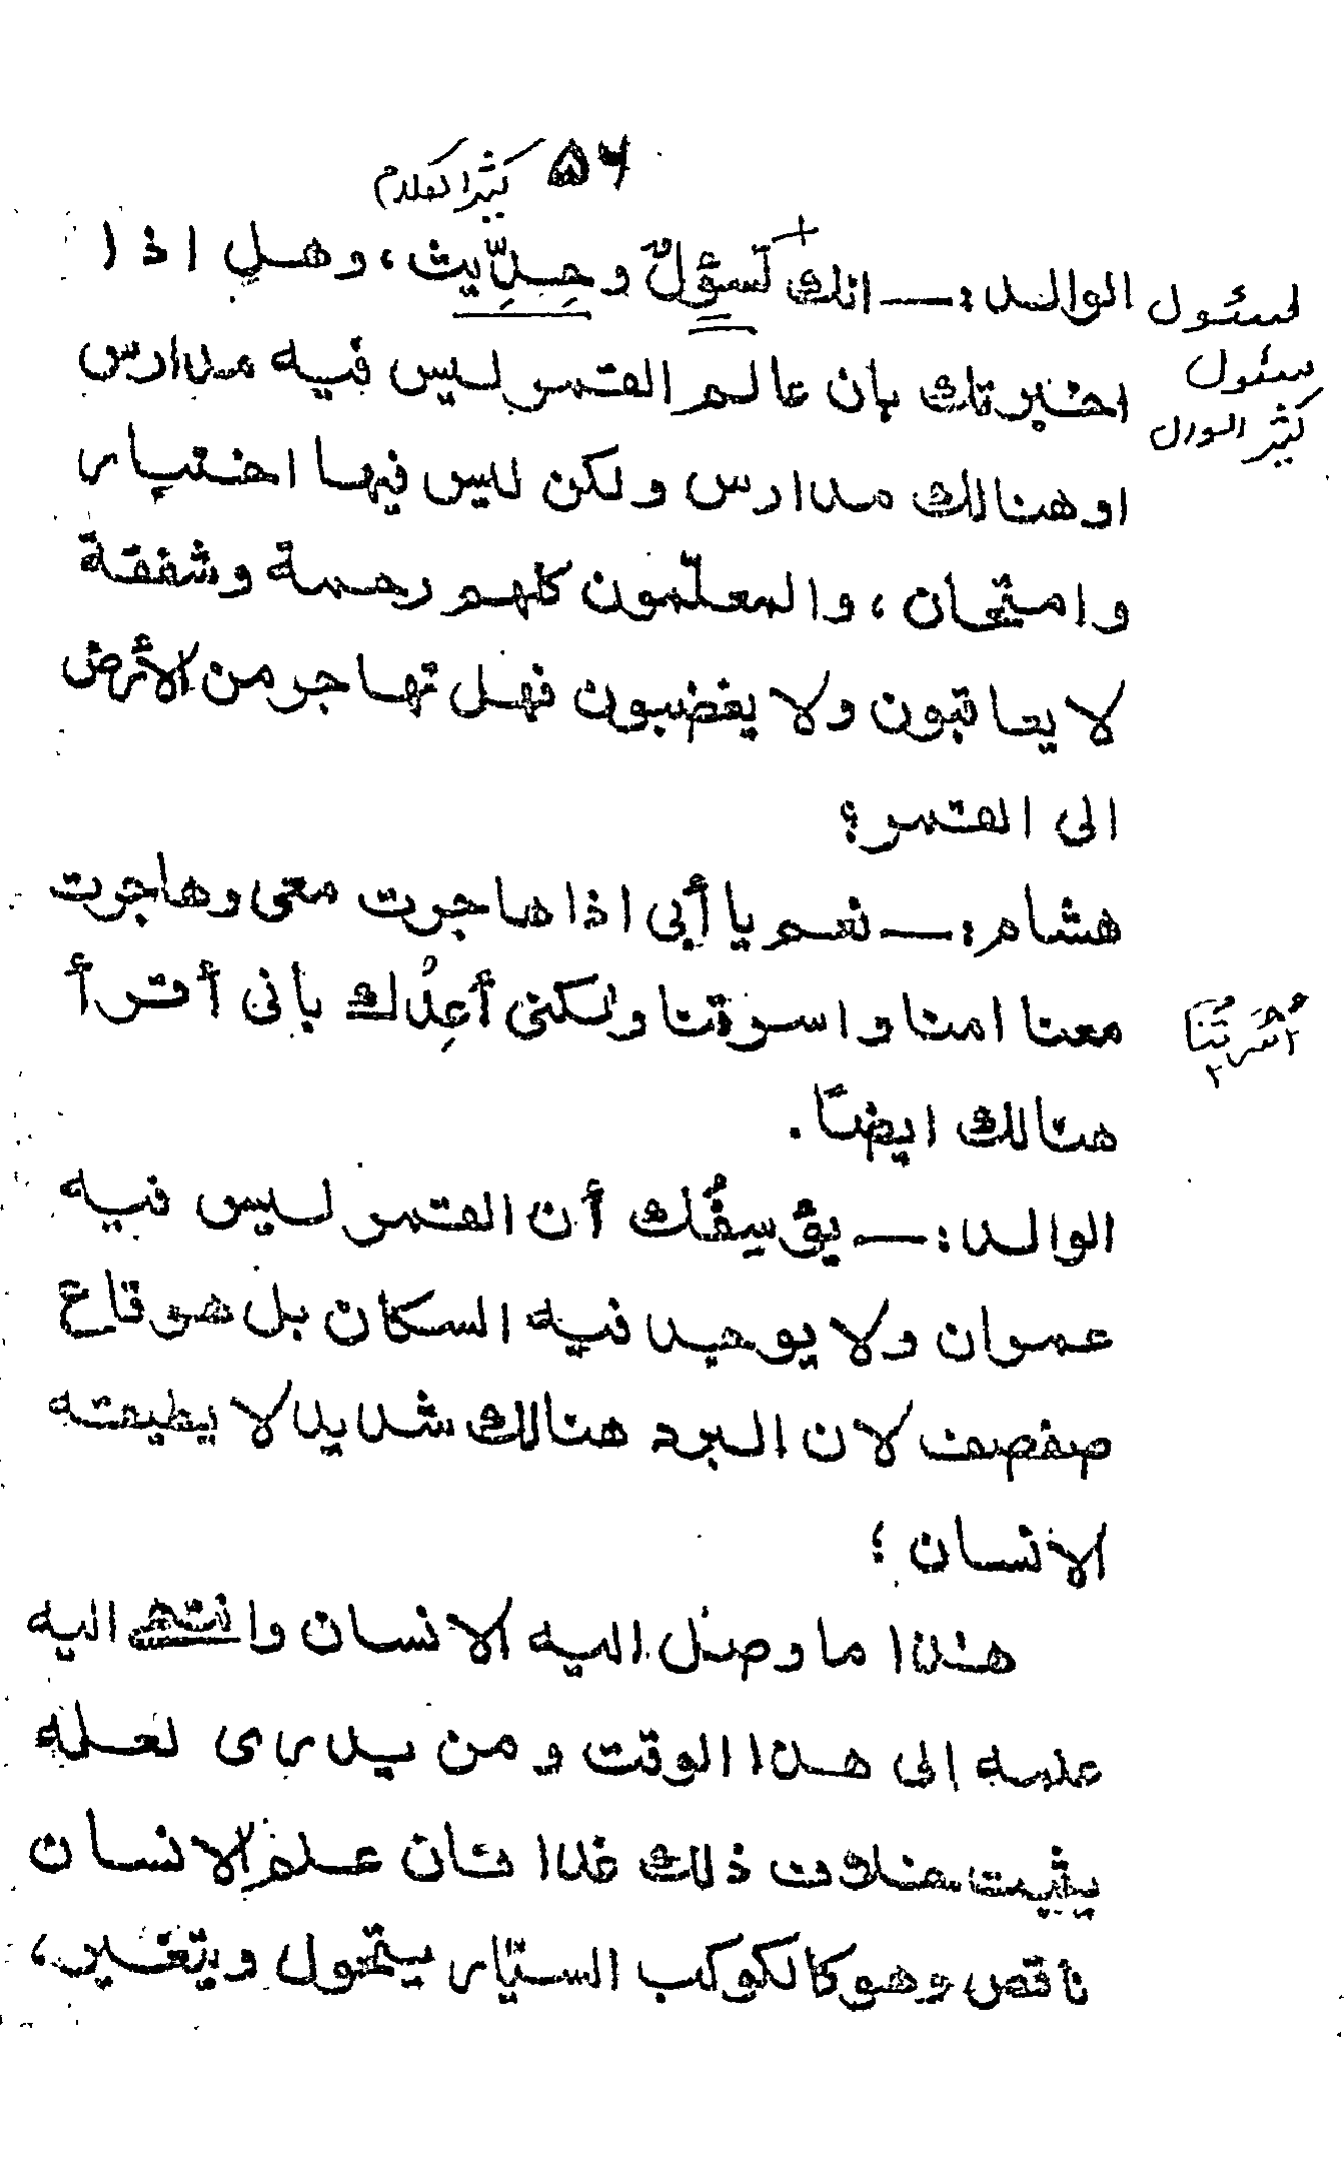 ۵۶
كثير الكلام
الوالد :ــ انك لَسؤِلٌ وحِدِّيث، وهل اذا
لسئول
سئول
كثير السوال
اخبرتك بان عالم القمر ليس فيه مدارس
او هنالك مدارس ولكن ليس فيها اختبار
وامتحان، والمعلّمون كلهم رحمة وشفقة
لا يعاقبون ولا يغضبون فهل تهاجر من الأرض
الى القمر؟
هشام :ــ نعم يا أبى اذا هاجرت معى وهاجرت
معنا امنا واسرتنا ولكنى أعِدُك بأنى أقرأ
اُسْرَتُنَا
هنالك ايضاً.
الوالد :ــ يؤسِفُك أن القمر ليس فيه
عمران ولا يوجد فيه السكان بل هو قاع
صفصف لان البرد هنالك شديد لا يطيقه
الانسان ؛
هذا ما وصل اليه الانسان وانتهى اليه
علمه الى هذا الوقت ومن يدرى لعله
يثبت خلاف ذلك غدا فان علم الانسان
ناقص وهو كالكوكب السيّار يتحول ويتغير،